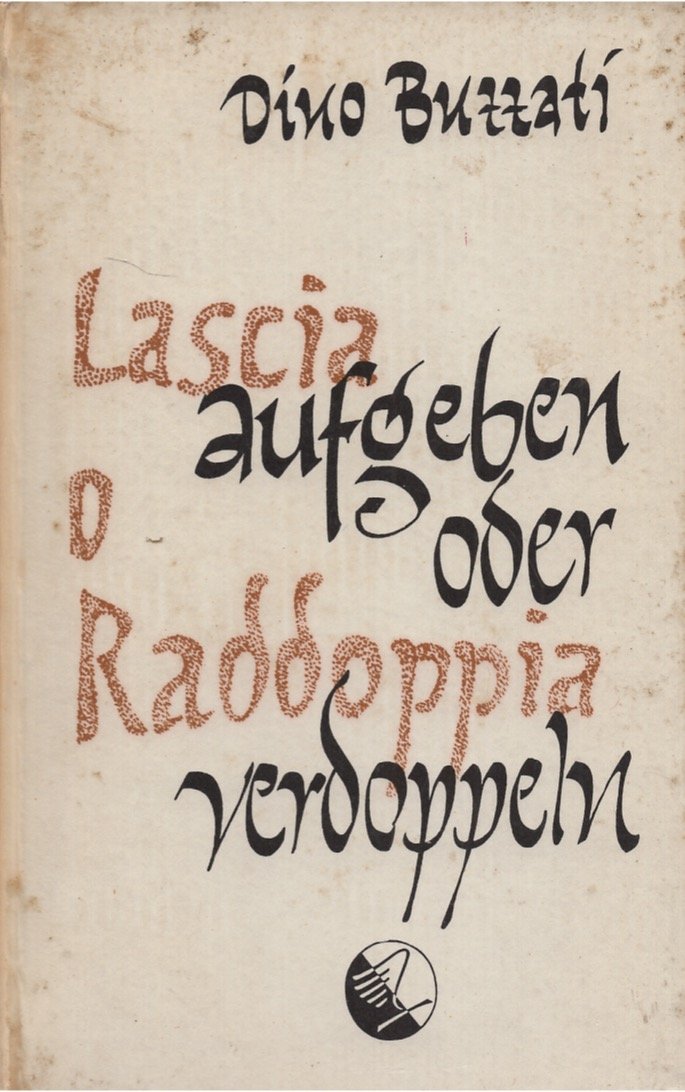 Dino Buzzati
Lascia
aufgeben
o
oder
Raddoppia
verdoppeln